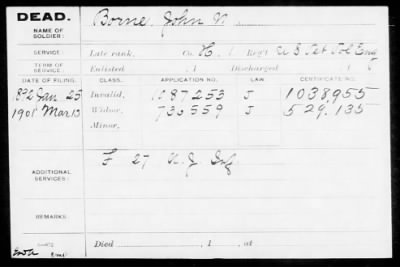 DEAD.
NAME OF SOLDIER:
Borne, John N.
SERVICE
Late rank, Co. H, 1 Reg't U S Vet Vol Eng
TERM OF SERVICE
Enlisted , 1 Discharged , 1
DATE OF FILING. CLASS. APPLICATION NO. LAW. CERTIFICATE NO.
892 Jan 25 Invalid, 1087253 J 1038,955
1908 Mar 13 Widow, 735559 J 529.135
Minor,
ADDITIONAL SERVICES:
F 27 N.J. Inf.
REMARKS:
Died , 1 , at